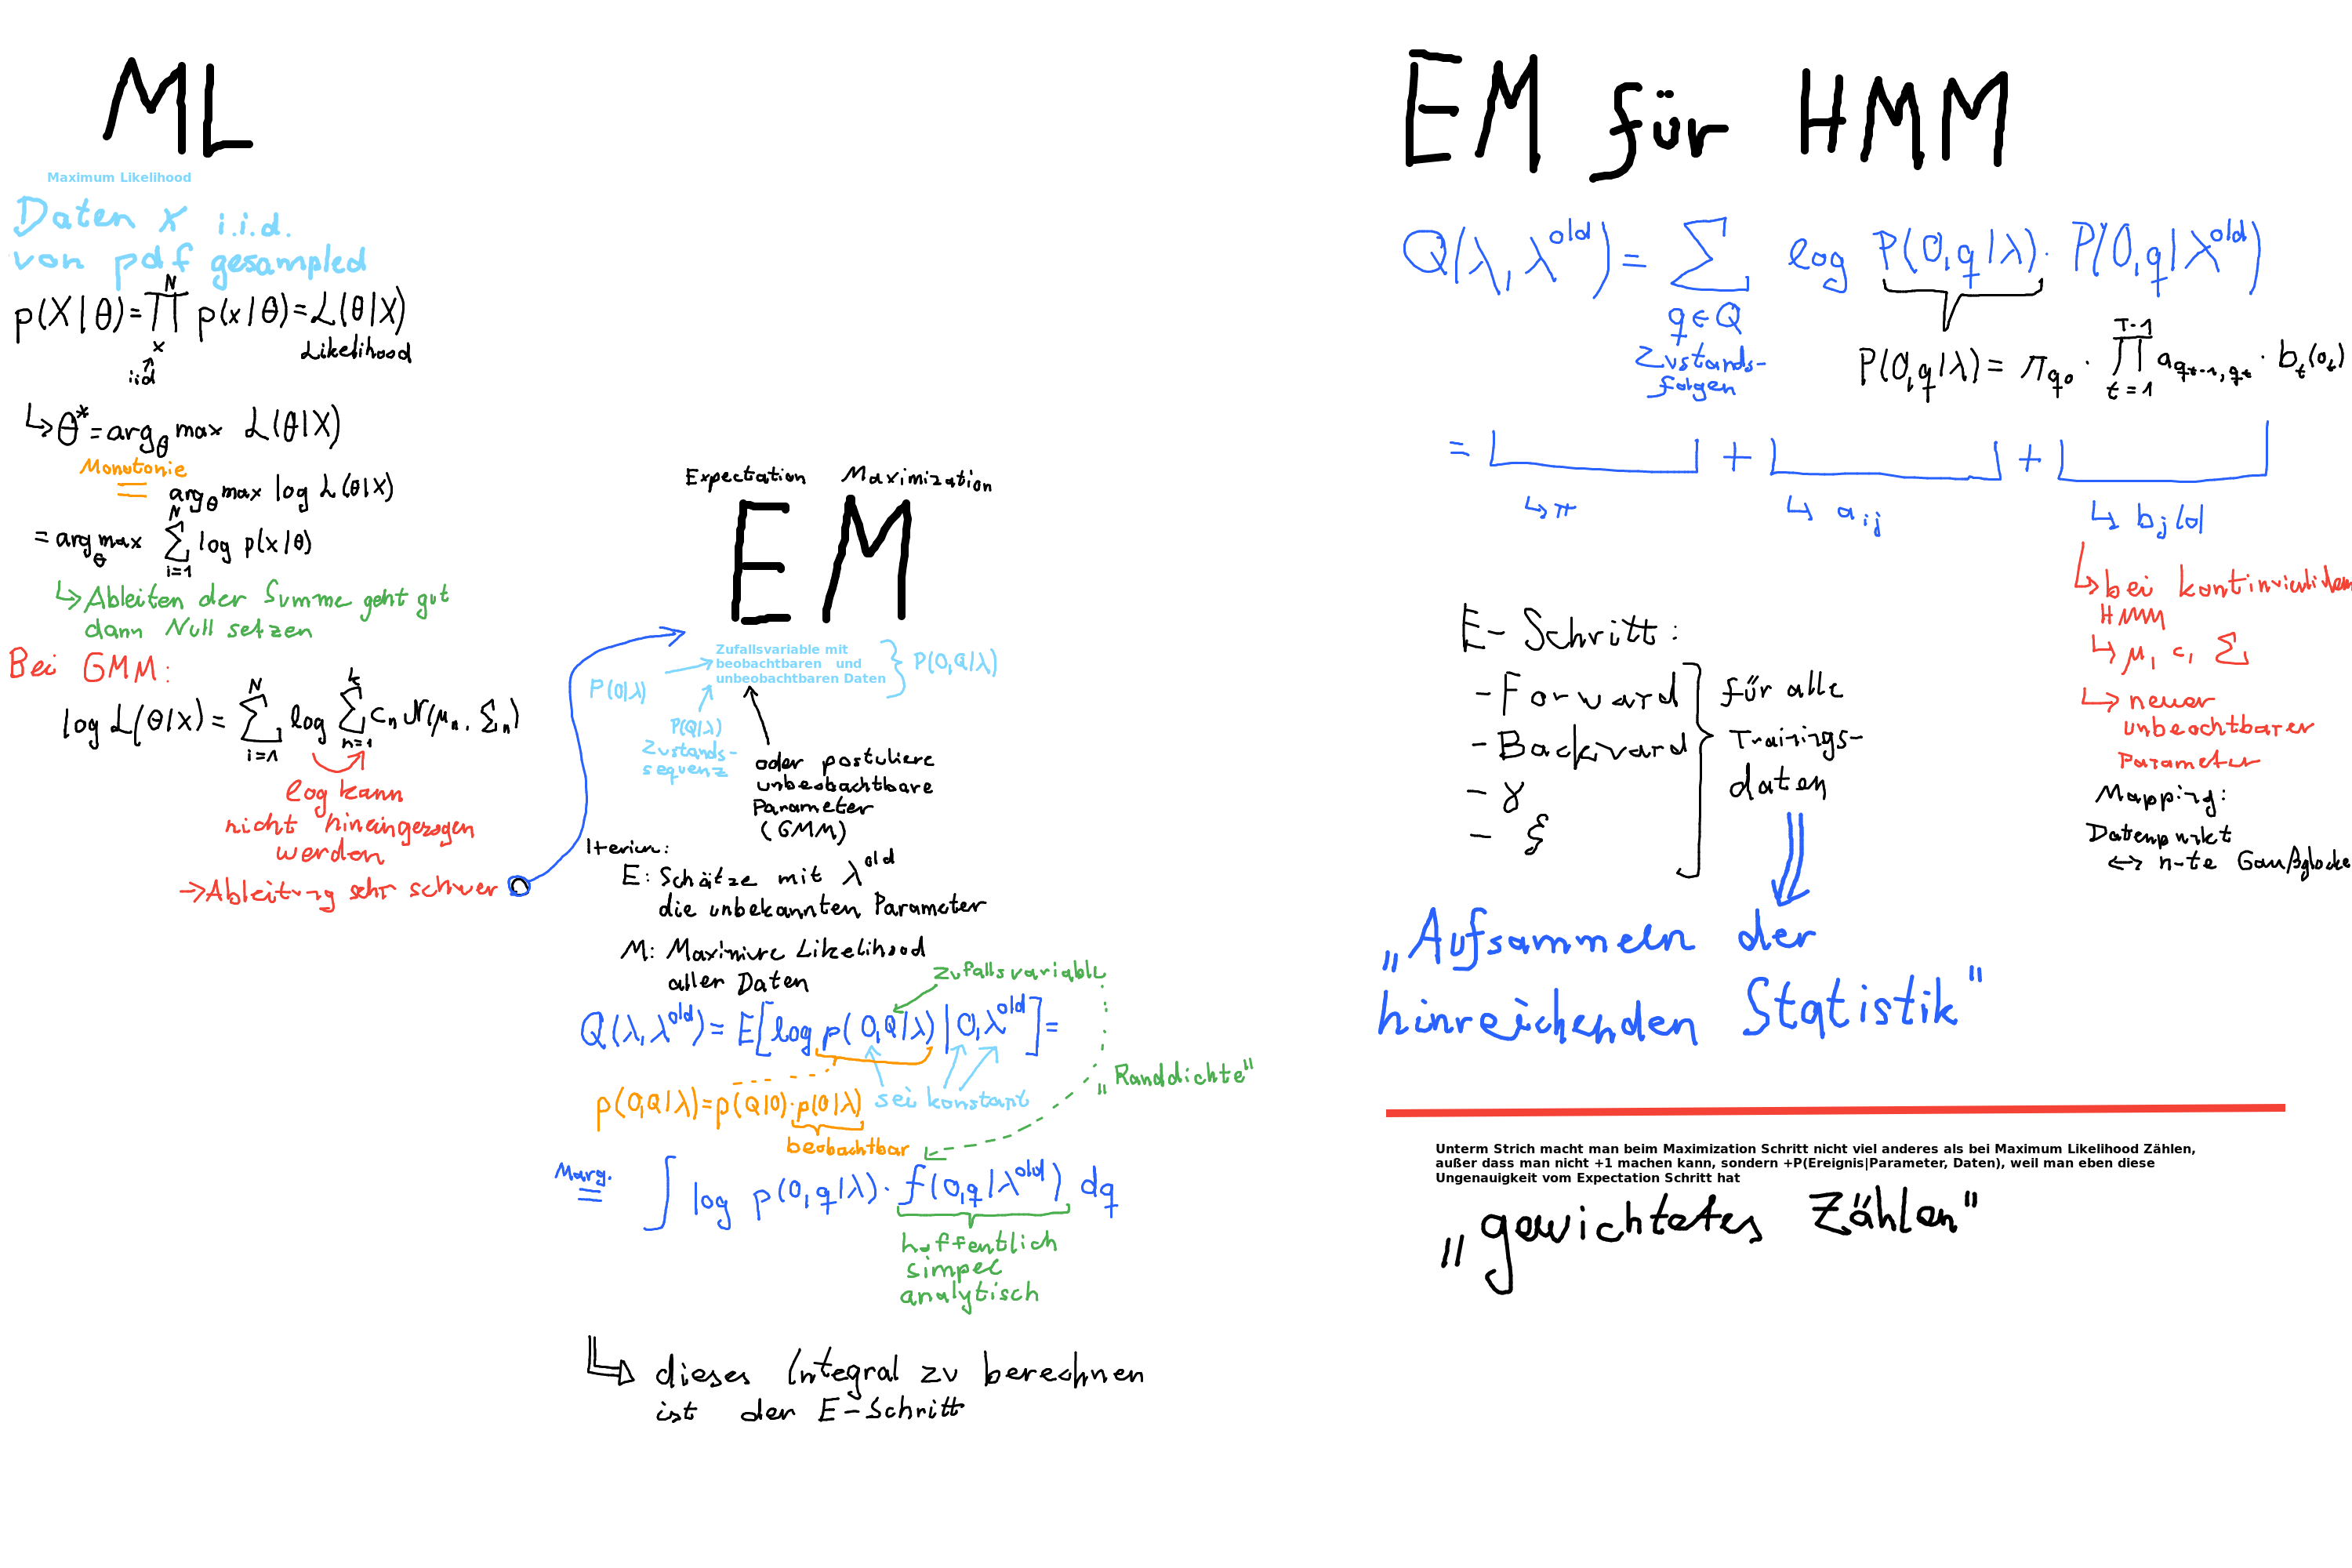 ML
Maximum Likelihood
Daten X i.i.d.
von pdf gesampled
p(X|θ) = ∏_x^N p(x|θ) = ℒ(θ|X)
iid
Likelihood
↳ θ* = arg_θ max ℒ(θ|X)
Monotonie
= arg_θ max log ℒ(θ|X)
= arg_θ max ∑_{i=1}^N log p(x|θ)
↳ Ableiten der Summe geht gut
dann Null setzen
Bei GMM:
log ℒ(θ|x) = ∑_{i=1}^N log ∑_{n=1}^k c_n 𝒩(μ_n, Σ_n)
log kann
nicht hineingezogen
werden
→ Ableitung sehr schwer
Expectation Maximization
EM
Zufallsvariable mit
beobachtbaren und
unbeobachtbaren Daten
P(O,Q|λ)
P(O|λ)
P(Q|λ)
Zustands-
sequenz
oder postuliere
unbeobachtbare
Parameter
(GMM)
Iterier:
E: Schätze mit λ^old
die unbekannten Parameter
M: Maximire Likelihood
aller Daten
Zufallsvariable
Q(λ, λ^old) = E[log p(O,Q|λ) | O, λ^old] =
p(O,Q|λ) = p(Q|O)·p(O|λ)
sei konstant
„Randdichte"
beobachtbar
Marg.
= ∫ log p(O,q|λ) · f(O,q|λ^old) dq
hoffentlich
simpel
analytisch
dieses Integral zu berechnen
ist der E-Schritt
EM für HMM
Q(λ, λ^old) = ∑ log P(O,q|λ) · P(O,q|λ^old)
q ∈ Q
Zustands-
folgen
P(O,q|λ) = π_{q_0} · ∏_{t=1}^{T-1} a_{q_{t-1},q_t} · b_t(o_t)
= + +
↳ π
↳ a_ij
↳ b_j(o)
↳ bei kontinuierlichem
HMM
↳ μ, c, Σ
↳ neuer
unbeochtbarer
Parameter
Mapping:
Datenpunkt
↔ n-te Gaußglocke
E-Schritt:
- Forward
- Backward
- γ
- ξ
für alle
Trainings-
daten
„Aufsammeln der
hinreichenden Statistik"
Unterm Strich macht man beim Maximization Schritt nicht viel anderes als bei Maximum Likelihood Zählen,
außer dass man nicht +1 machen kann, sondern +P(Ereignis|Parameter, Daten), weil man eben diese
Ungenauigkeit vom Expectation Schritt hat
„gewichtetes Zählen"